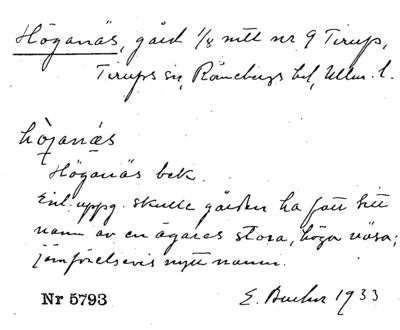 Höganäs, gård 1/8 mtl nr 9 Tirup,
Tirups sn, Rönnebergs hd, Mlm. l.
hö̀ganäs
Höganäs bek.
Enl. uppg. skulle gården ha fått sitt
namn av en ägares stora, höga näsa;
jämförelsevis nytt namn.
Nr 5793 E. 1933